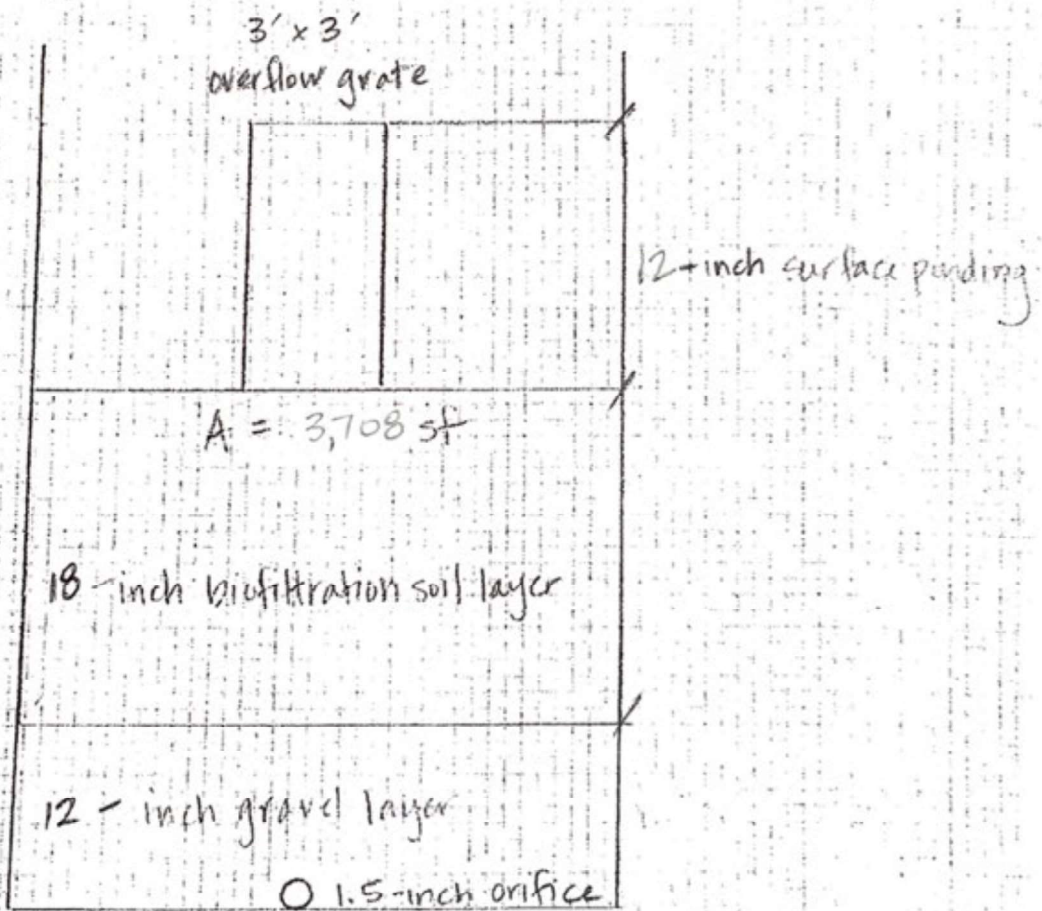 3' x 3'
overflow grate
12-inch surface ponding
A = 3,708 sf
18-inch biofiltration soil layer
12 - inch gravel layer
1.5-inch orifice